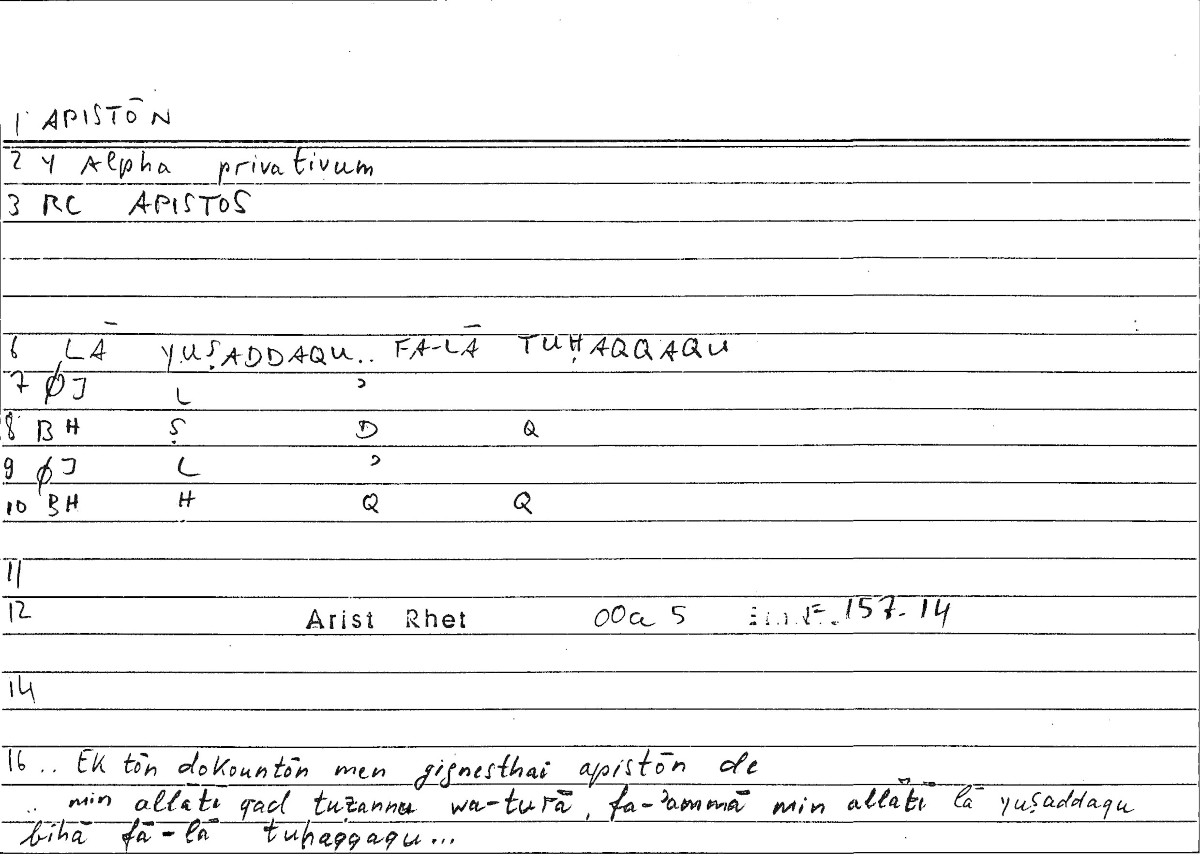 1 APISTŌN
2 Y Alpha privativum
3 RC APISTOS
6 LĀ YUṢADDAQU.. FA-LĀ TUḤAQQAQU
7 ØJ L ʾ
8 BH Ṣ D Q
9 ØJ L ʾ
10 BH H Q Q
11
12 Arist Rhet 00a 5 157.14
14
16 .. Ek tōn dokountōn men gignesthai apistōn de
.. min allātī qad tuẓannu wa-turā, fa-ʾammā min allātī lā yuṣaddaqu
bihā fā-lā tuḥaqqaqu...